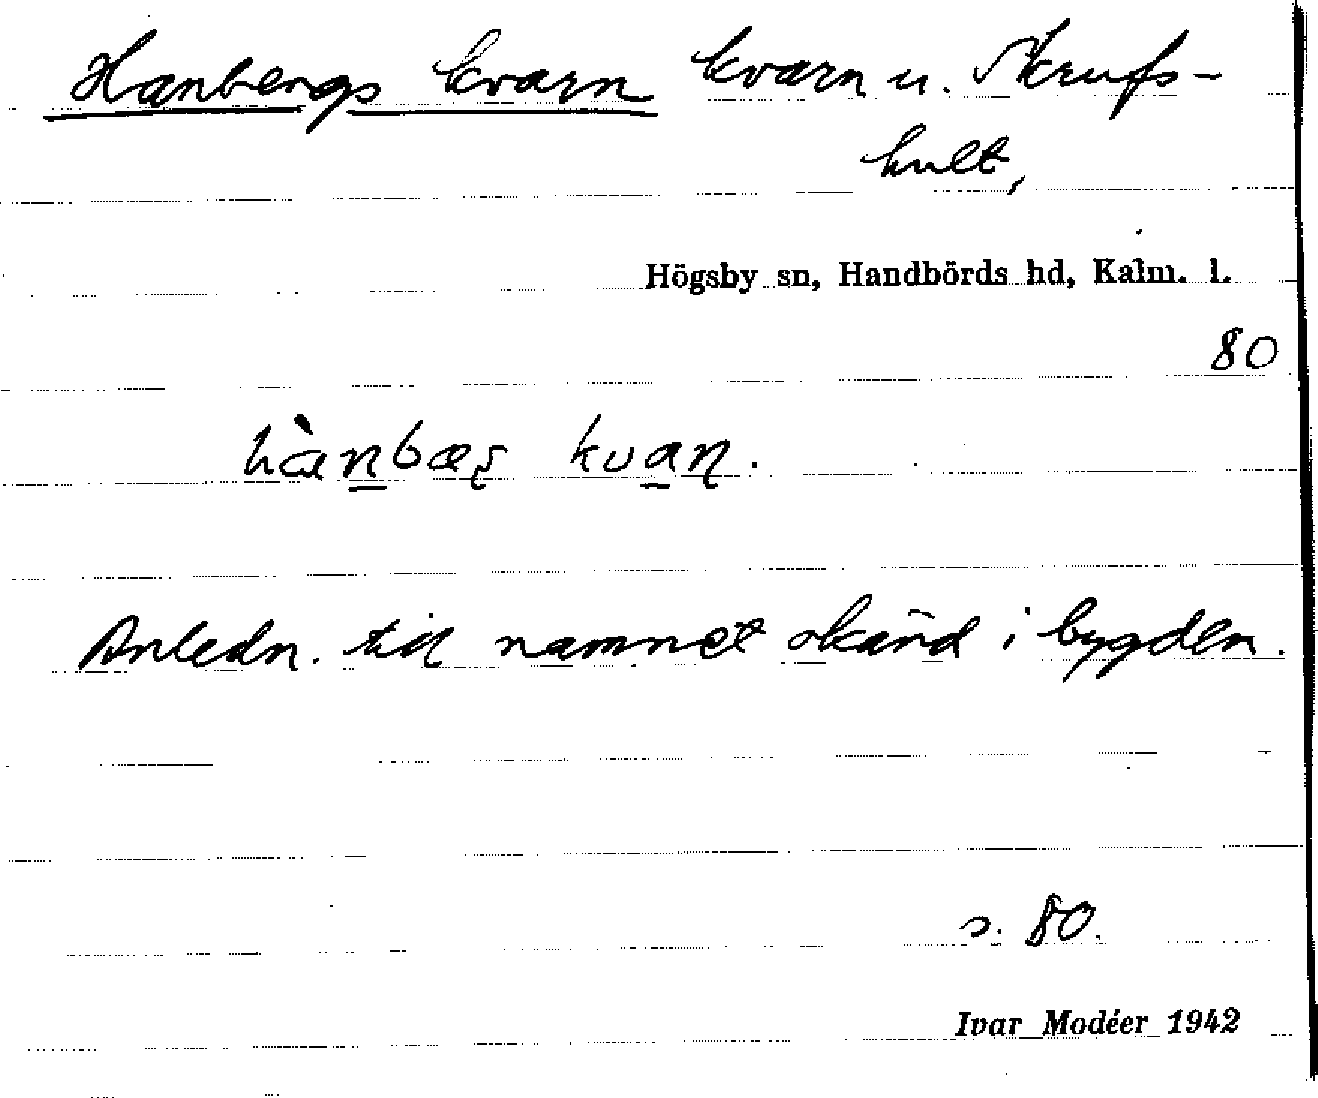 Hanbergs kvarn kvarn u. Skrufs-
hult,
Högsby sn, Handbörds hd, Kalm. l.
80
hànbæʂ kvaɳ.
Anledn. till namnet okänd i bygden.
s. 80.
Ivar Modéer 1942